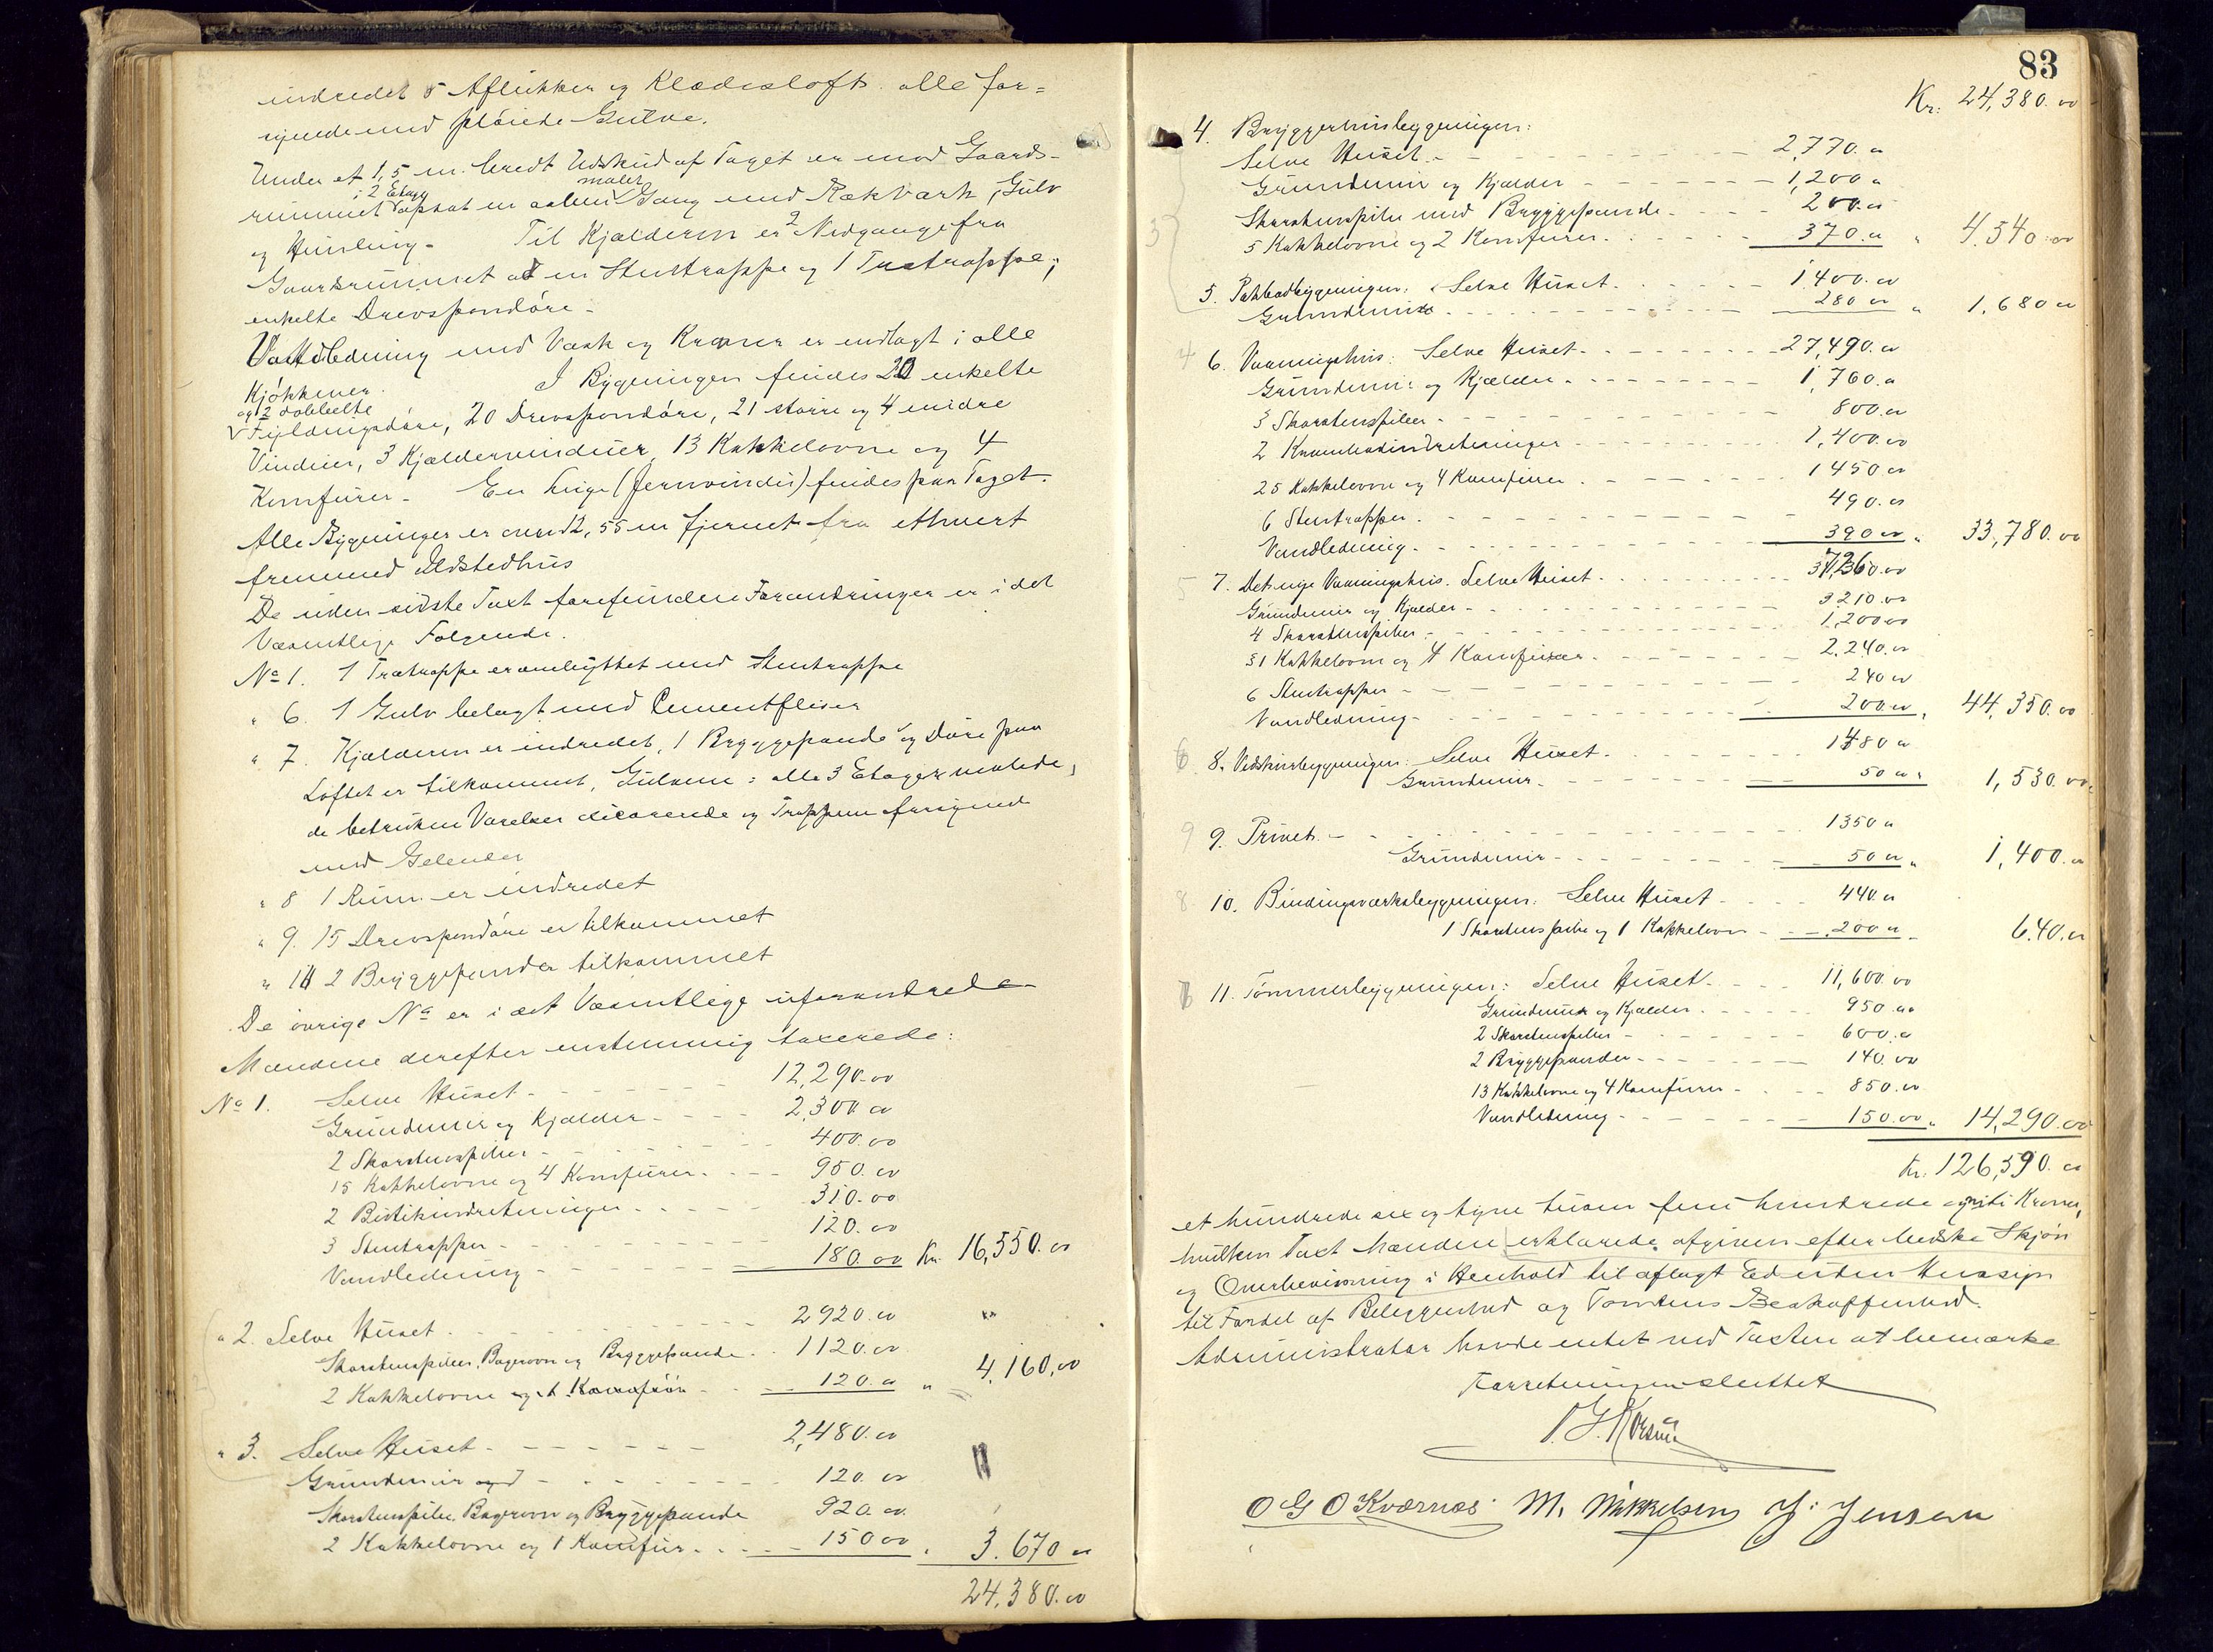 indredet 5 Aflukker og Klædesloft alle for=
synede med pløiede Gulve.
Under et 1,5 m. bredt Udskud af Taget er mod Gaards-
rummet i 2 Etage opsat en aaben malet Gang med Rækværk, Gulv
og Himling. Til Kjælderen er 2 Nedgange fra
Gaardsrummet ad en Stentrappe og 1 Trætrappe;
enkelte Drevspendøre.
Vandledning med Vask og Kraner er indlagt i alle
Kjøkkener. I Bygningen findes 20 enkelte
og 2 dobbelte
Fyldingsdøre, 20 Drevspendøre, 21 større og 4 mindre
Vinduer, 3 Kjældervinduer, 13 Kakkelovne og 4
Komfurer. En Luge (Jernvindu) findes paa Taget.
Alle Bygninger er over 12,55 m fjernet fra ethvert
fremmed Ildstedhus
De siden sidste Taxt forefundne Forandringer er i det
Væsentlige Følgende.
No 1. 1 Trætrappe er ombyttet med Stentrappe
" 6. 1 Gulv belagt med Cementfliser
" 7. Kjælderen er indredet, 1 Bryggepande og Døre paa
Loftet er tilkommet, Gulvene i alle 3 Etager malede,
de betrukne Værelser decorerede og Trapperne forsynede
med Gelender
" 8 1 Rum er indredet
" 9. 15 Drevspendøre er tilkommet
" 11 2 Bryggepander tilkommet
De øvrige No er i det Væsentlige uforandrede
Mændene derefter enstemmig taxerede:
No 1. Selve Huset - 12,290.00
Grundmur og Kjælder - 2,300.00
2 Skorstenspiber - 400.00
15 Kakkelovne og 4 Komfurer. 950.00
2 Butikindretninger - 310.00
3 Stentrapper - 120.00
Vandledning - 180.00 Kr. 16,550.00
" 2. Selve Huset. 2920.00
Skorstenspiber, Bagerovn og Bryggepande. 1120.00
2 Kakkelovne og 1 Komfur - 120.00 " 4,160.00
" 3. Selve Huset - 2,480.00
Grundmur - 120.00
Skorstenspibe, Bagerovn og Bryggepande 920.00
2 Kakkelovne og 1 Komfur - 150.00 " 3.670.00
24,380.00
83
Kr. 24,380.00
4. Bryggerhusbygningen:
Selve Huset. - 2,770.00
Grundmur og Kjælder - 1,200.00
Skorstenspibe med Bryggepande. 200.00
5 Kakkelovne og 2 Komfurer. 370.00 " 4,540.00
5. Pakbodbygningen: Selve Huset. 1400.00
Grundmur. 280.00 " 1,680.00
6. Vaaningshus: Selve Huset - 27,490.00
Grundmur og Kjælder - 1,760.00
3 Skorstenspiber - 800.00
2 Krambodindretninger 1,400.00
25 Kakkelovne og 4 Komfurer. 1450.00
6 Stentrapper. 490.00
Vandledning. 390.00 " 33,780.00
7. Det nye Vaaningshus. Selve Huset. 37,260.00
Grundmur og Kjælder - 3210.00
4 Skorstenspiber - 1,200.00
31 Kakkelovne og 4 Komfurer. 2,240.00
6 Stentrapper - 240.00
Vandledning - 200.00 " 44,350.00
8. Vedskursbygningen: Selve Huset. 1480.00
Grundmur. 50.00 " 1,530.00
9. Privet. - 1350.00
Grundmur - 50.00 " 1,400.00
10. Bindingsværksbygningen: Selve Huset - 440.00
1 Skorstenspibe og 1 Kakkelovn - 200.00 640.00
11. Tømmerbygningen: Selve Huset. 11,600.00
Grundmur og Kjælder. 950.00
2 Skorstenspiber - 600.00
2 Bryggepander - 140.00
13 Kakkelovne og 4 Komfurer - 850.00
Vandledning - 150.00 " 14,290.00
Kr. 126,590.00
et hundrede sex og tyve tusen fem hundrede og niti Kroner,
hvilken Taxt Mændene erklærede afgiven efter bedste Skjøn
og Overbevisning i Henhold til aflagt Ed uden Hensyn
til Fordel af Beliggenhed og Tomtens Beskaffenhed.
Administrator havde intet ved Taxten at bemærke
Forretningen sluttet
O G O Kværnæs M. Mikkelsen J. Jensen